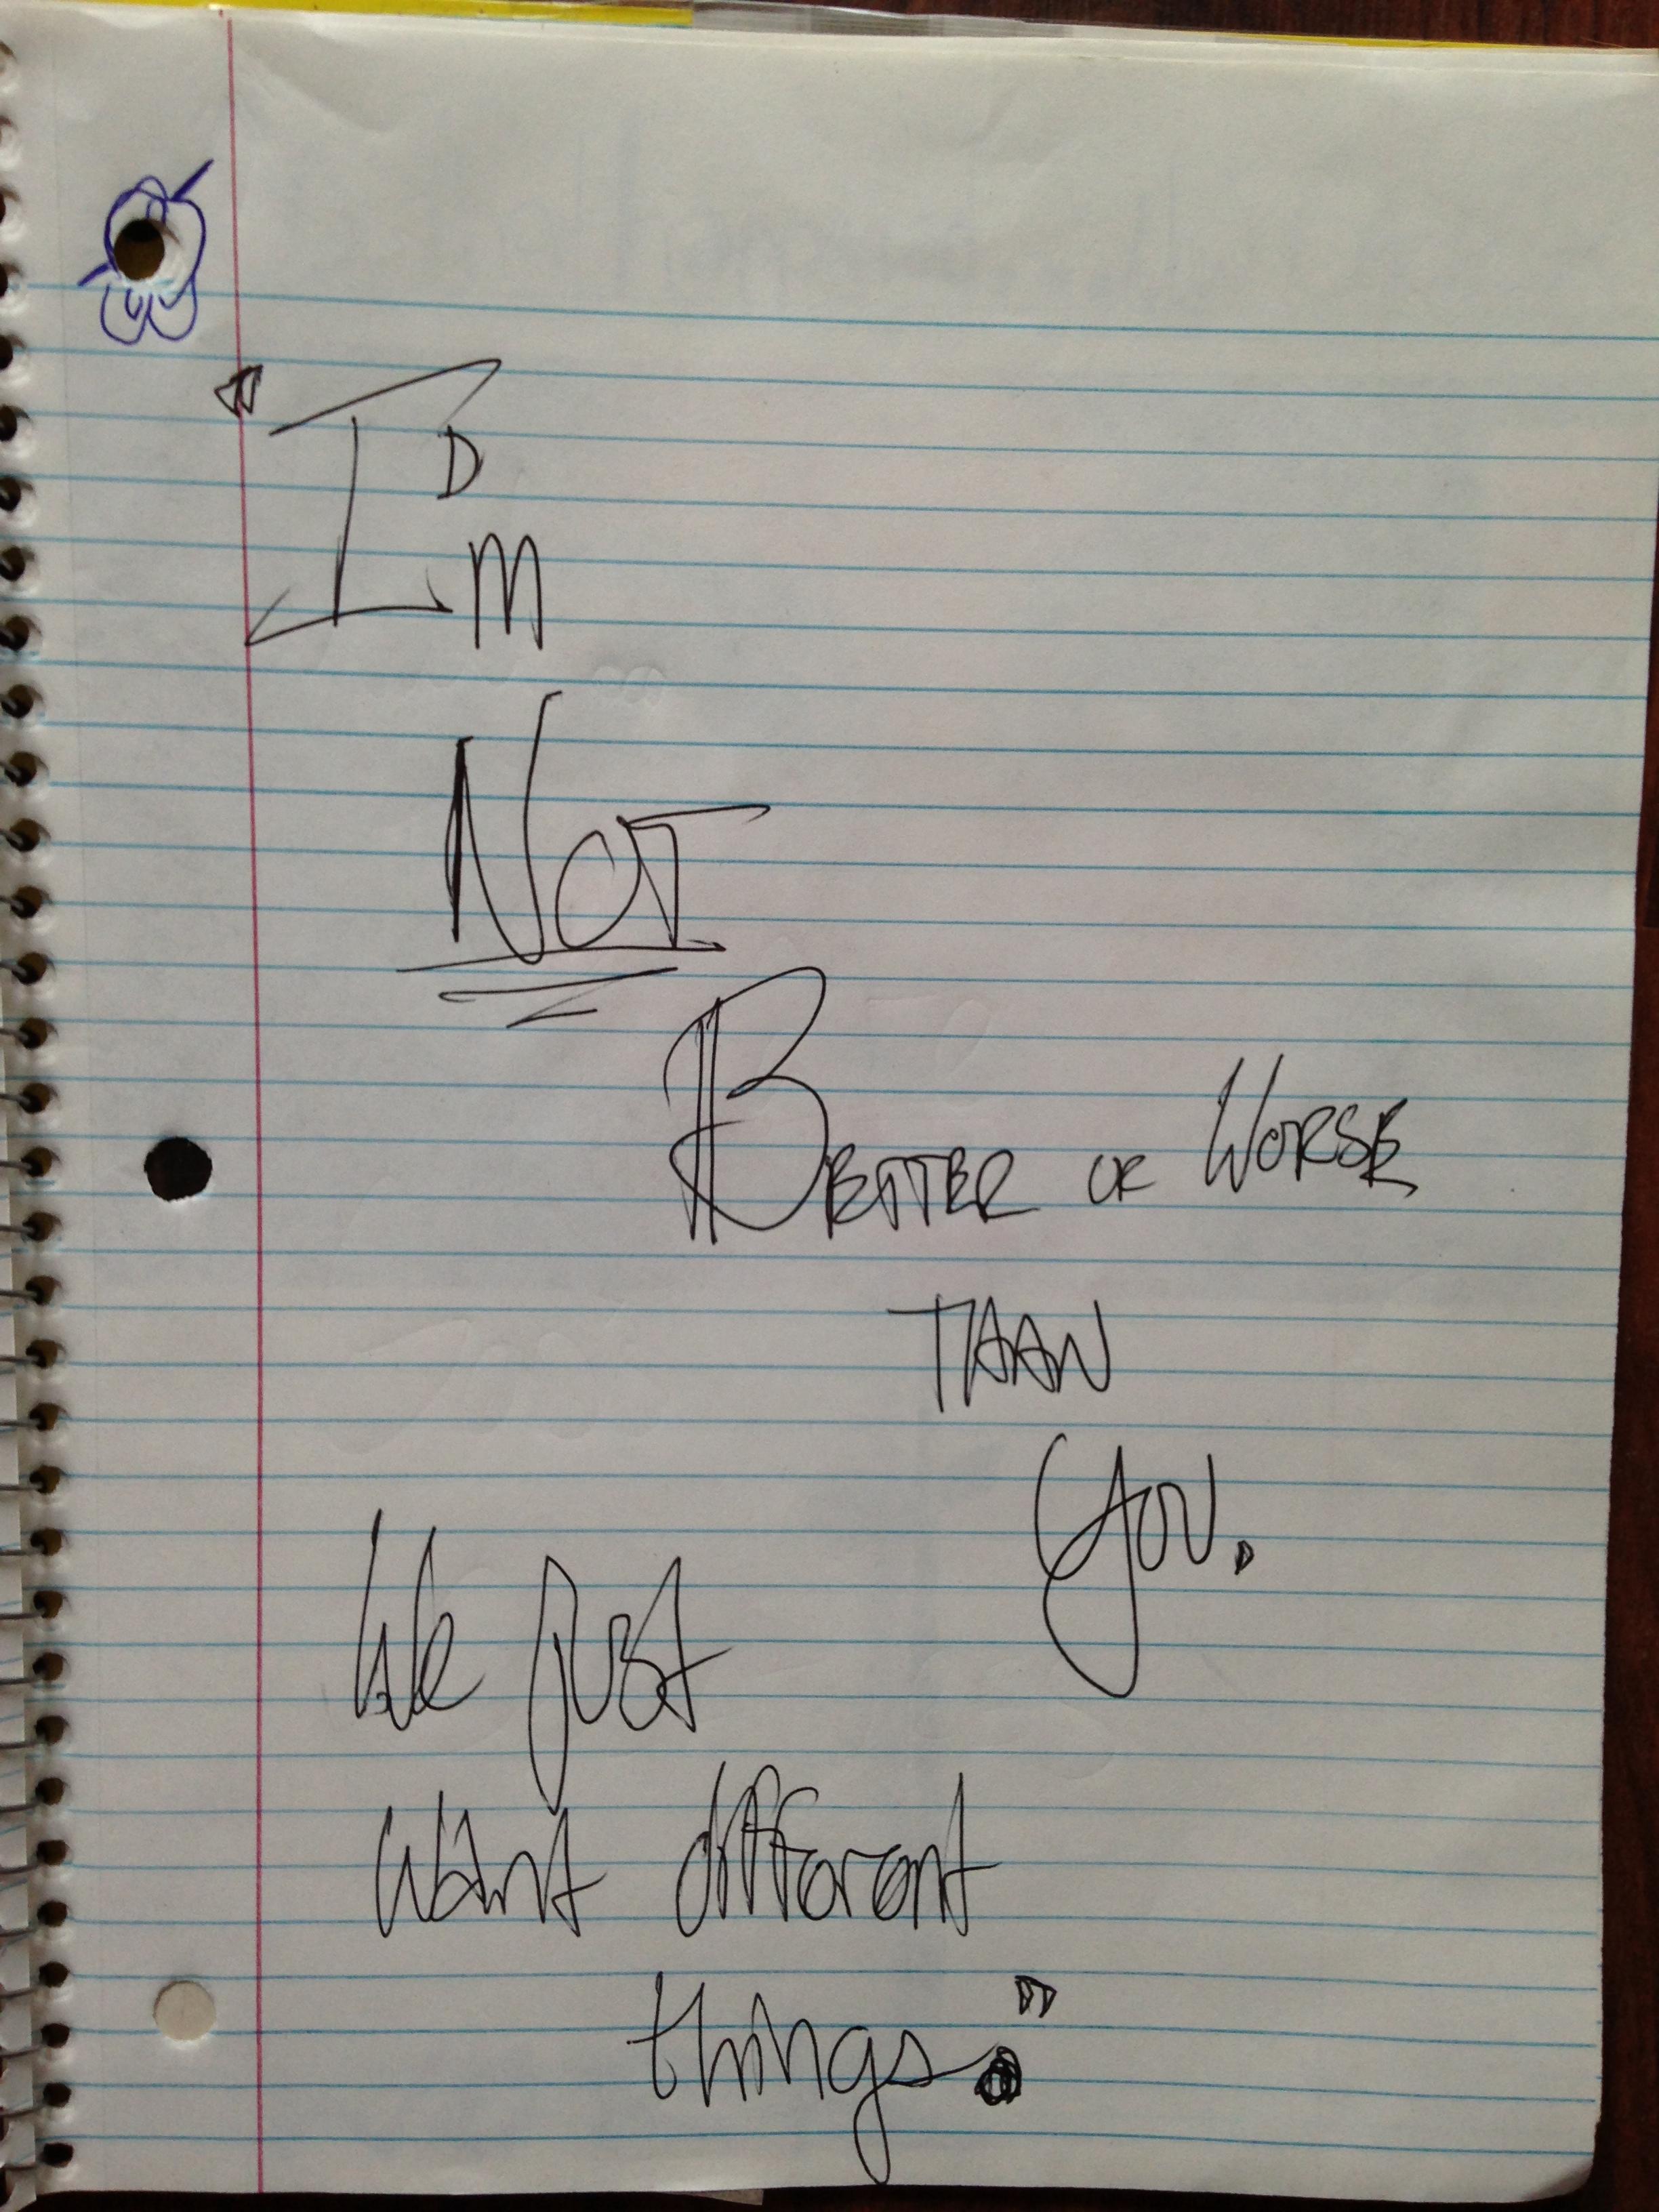 "I'm
Not
Better or Worse
THAN
You.
We just
want different
things."